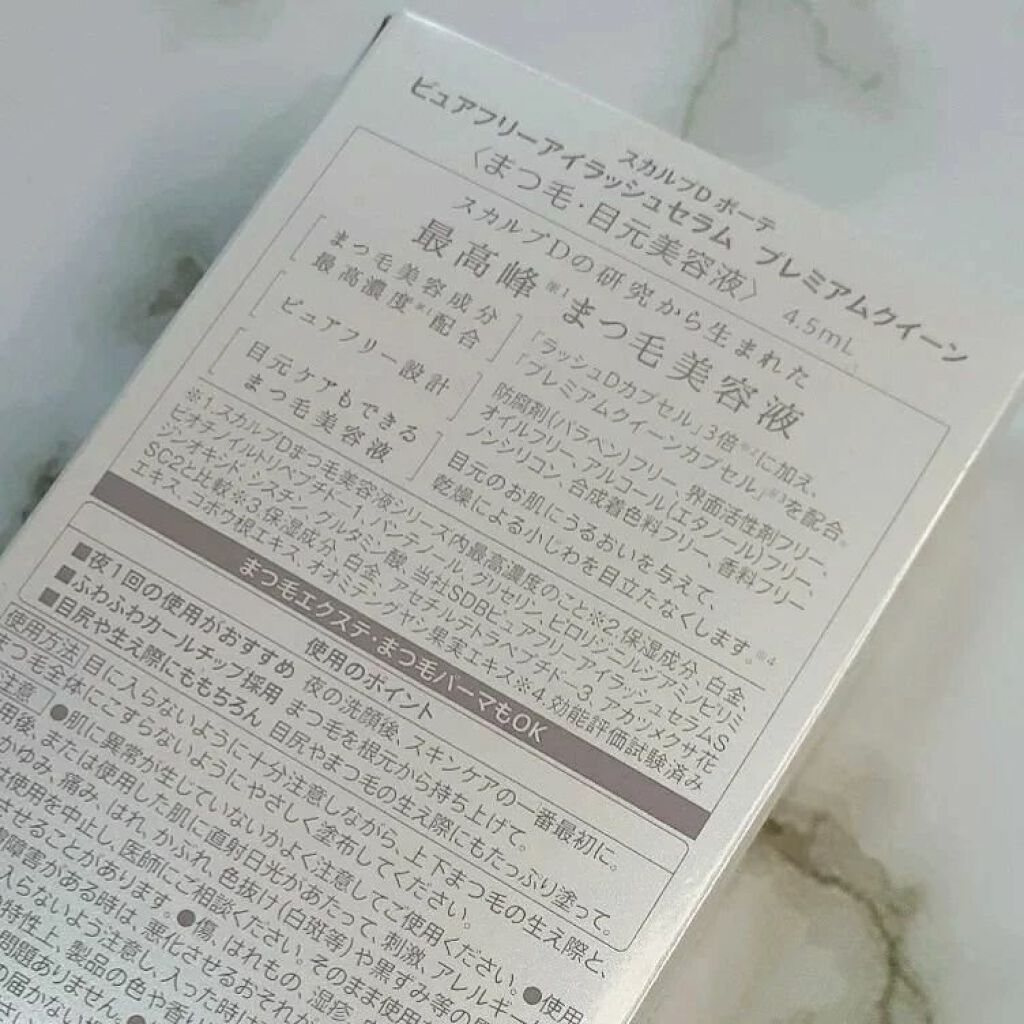 スカルプD ボーテ
ピュアフリーアイラッシュセラム プレミアムクイーン
〈まつ毛・目元美容液〉 4.5mL
スカルプDの研究から生まれた
最高峰※1まつ毛美容液
まつ毛美容成分
最高濃度※1配合
「ラッシュDカプセル」3倍※2に加え、
「プレミアムクイーンカプセル」※3を配合。
ピュアフリー設計
防腐剤(パラベン)フリー、界面活性剤フリー、
オイルフリー、アルコール(エタノール)フリー、
ノンシリコン、合成着色料フリー、香料フリー
目元ケアもできる
まつ毛美容液
目元のお肌にうるおいを与えて、
乾燥による小じわを目立たなくします。※4
※1.スカルプDまつ毛美容液シリーズ内最高濃度のこと※2.保湿成分、白金、
ビオチノイルトリペプチド-1、パンテノール、グリセリン、ピロリジニルジアミノピリミ
ジンオキシド、シスチン、グルタミン酸、当社SDBピュアフリーアイラッシュセラムS
SC2と比較※3.保湿成分、白金、アセチルテトラペプチド-3、アカツメクサ花
エキス、ゴボウ根エキス、オオミテングヤシ果実エキス※4.効能評価試験済み
まつ毛エクステ・まつ毛パーマもOK
使用のポイント
■夜1回の使用がおすすめ 夜の洗顔後、スキンケアの一番最初に。
■ふわふわカールチップ採用 まつ毛を根元から持ち上げて。
■目尻や生え際にももちろん 目尻やまつ毛の生え際にもたっぷり塗って。
使用方法 目に入らないように十分注意しながら、上下まつ毛の生え際と、
まつ毛全体にこすらないようにやさしく塗布してください。
注意 ●肌に異常が生じていないかよく注意してご使用ください。●使用
用後、または使用した肌に直射日光があたって、刺激、アレルギー
かゆみ、痛み、はれ、かぶれ、色抜け(白斑等)や黒ずみ等の
は使用を中止し、医師にご相談ください。そのまま使用
させることがあります。●傷、はれもの、湿疹
障害がある時は、悪化させるおそれが
入らないよう注意し、入った時は
特性上、製品の色や香り
問題ありません。
の届かない